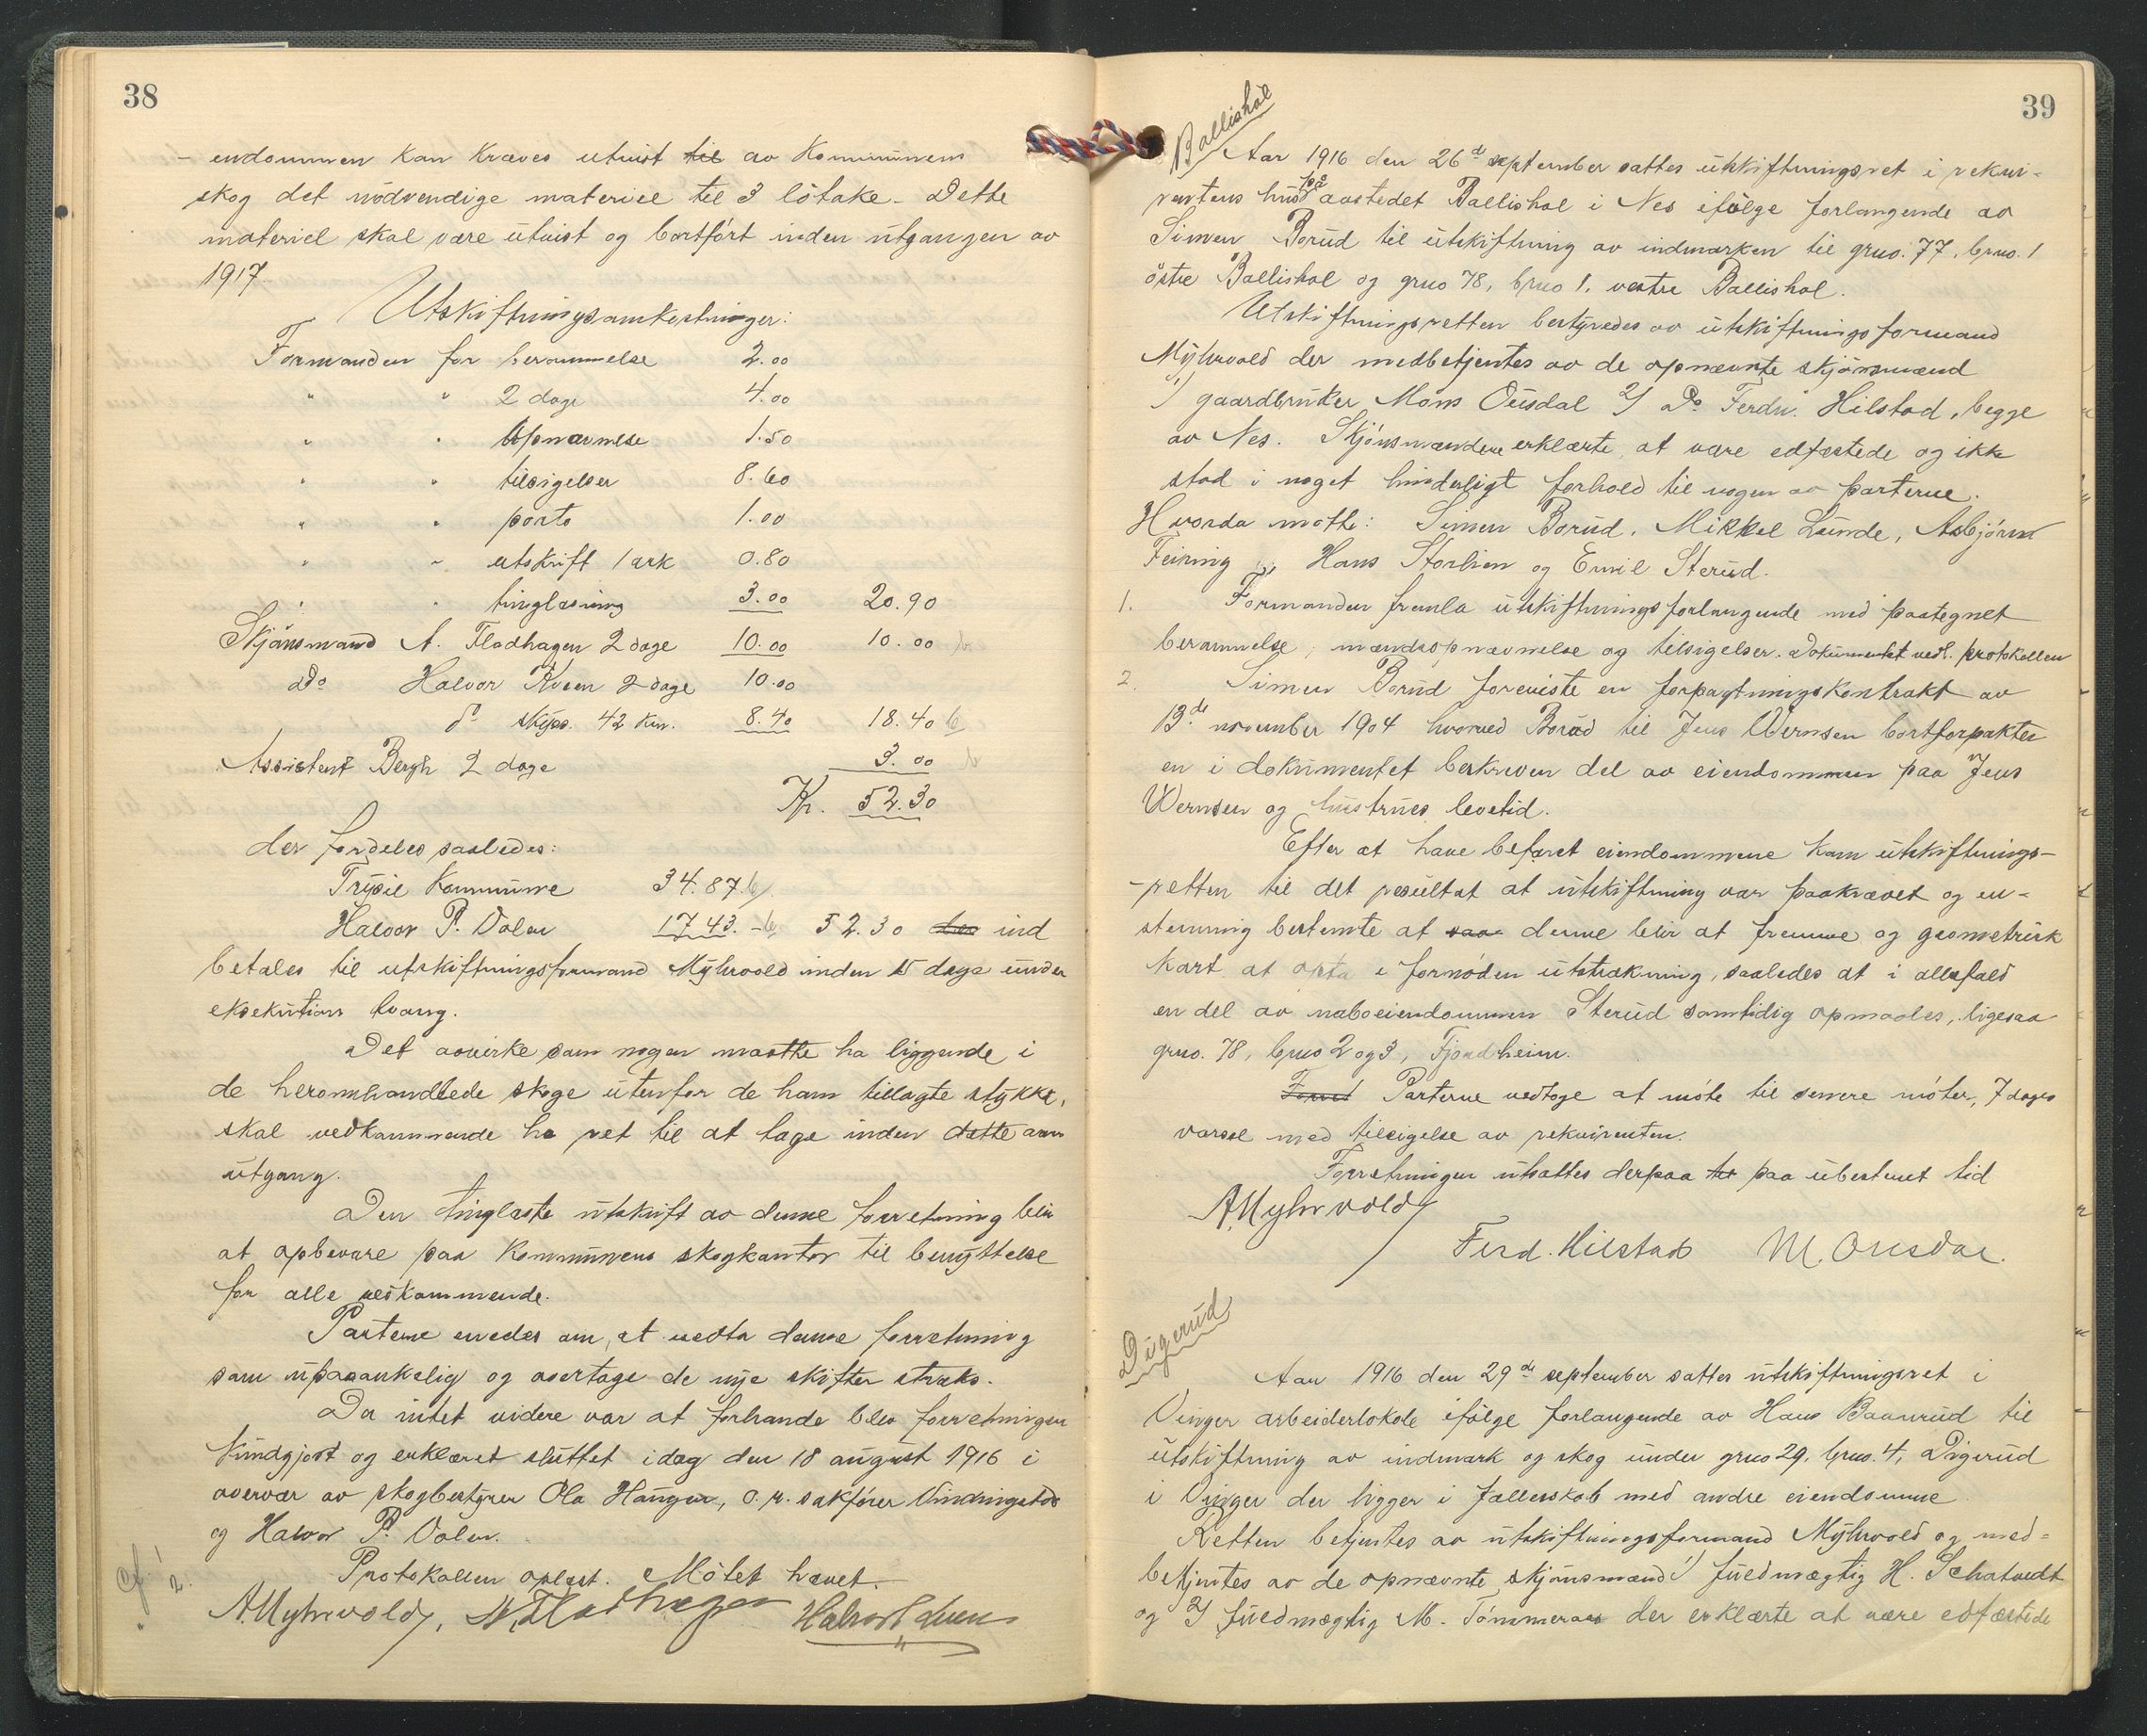 38
- endommen kan kræves utvist til av Kommunens
skog det nødvendige materiel til 3 løtake. Dette
materiel skal være utvist og bortført inden utgangen av
1917.
Utskiftningsomkostninger:
Formanden for berammelse 2.00
" " 2 dage 4.00
" " opnævnelse 1.50
" " tilsigelser 8.60
" " porto 1.00
" " utskrift 1 ark 0.80
" " tinglæsning 3.00 20.90
Skjønsmand A. Fladhagen 2 dage 10.00 10.00
Do Halvor Kveen 2 dage 10.00
do skyss. 42 km. 8.40 18.40
Assistent Bergh 2 dage 3.00
Kr. 52.30
der fordeles saaledes:
Trysil Kommune 34.87
Halvor P. Volen 17.43. - 52.30 ind
betales til utskiftningsformand Myhrvold inden 15 dage under
eksekution tvang.
Det avvirke som nogen maatte ha liggende i
de heromhandlede skoge utenfor de ham tillagte stykke,
skal vedkommende ha ret til at tage inden dette aars
utgang.
Den tinglæste utskrift av denne forretning blir
at opbevare paa Kommunens skogkontor til benyttelse
for alle vedkommende.
Parterne enedes om, at vedta denne forretning
som upaaankelig og overtage de nye skifter straks.
Da intet videre var at forhandle blev forretningen
kundgjort og erklæret sluttet idag den 18 august 1916 i
overvær av skogbestyrer Ola Haugen, o.r. sakfører Vindingstad
og Halvor P. Volen.
Protokollen oplæst. Møtet hævet.
A Myhrvold, A. Fladhagen Halvor Kveen
39
Ballishol
Aar 1916 den 26de september sattes utskiftningsret i rekvi-
rentens hus paa aastedet Ballishol i Nes ifølge forlangende av
Simen Borud til utskiftning av indmarken til grno. 77, brno. 1
østre Ballishol og grno 78, brno 1, vestre Ballishol.
Utskiftningsretten bestyredes av utskiftningsformand
Myhrvold der medbetjentes av de opnævnte skjønsmænd
1) gaardbruker Mons Ousdal 2) Do Ferdn. Hilstad, begge
av Nes. Skjønsmændene erklærte, at være edfæstede og ikke
stod i noget hinderligt forhold til nogen av parterne.
Hvorda møtte: Simen Borud, Mikkel Lunde, Asbjørn
Feiring, Hans Storlien og Emil Sterud.
1. Formanden fremla utskiftningsforlangende med paategnet
berammelse, mændsopnævnelse og tilsigelser. Dokumentet vedl. protokollen
2. Simen Borud foreviste en forpagtningskontrakt av
13de november 1904 hvorved Borud til Jens Wernsen bortforpakter
en i dokumentet beskreven del av eiendommen paa Jens
Wernsen og hustrues levetid.
Efter at have befaret eiendommene kom utskiftnings-
-retten til det resultat at utskiftning var paakrævet og en-
stemmig bestemte at saa denne blir at fremme og geometrisk
kart at opta i fornøden utstrækning, saaledes at i allefald
en del av naboeiendommen Sterud samtidig opmaales, ligesaa
grno. 78, brno 2 og 3, Fjordheim.
Parterne vedtoge at møte til senere møter, 7 dages
varsel med tilsigelse av rekvirenten.
Forretningen utsattes derpaa paa ubestemt tid
A Myhrvold
Ferd. Hilstad M. Ousdal.
Digerud
Aar 1916 den 29de september sattes utskiftningsret i
Vinger arbeiderlokale ifølge forlangende av Hans Baanrud til
utskiftning av indmark og skog under grno 29, brno. 4, Digerud
i Vinger der ligger i fællesskab med andre eiendomme
Retten betjentes av utskiftningsformand Myhrvold og med-
betjentes av de opnævnte skjønsmænd 1) fuldmægtig H. Schatvedt
og 2) fuldmægtig M. Tømmeraas der erklærte at være edfæstede